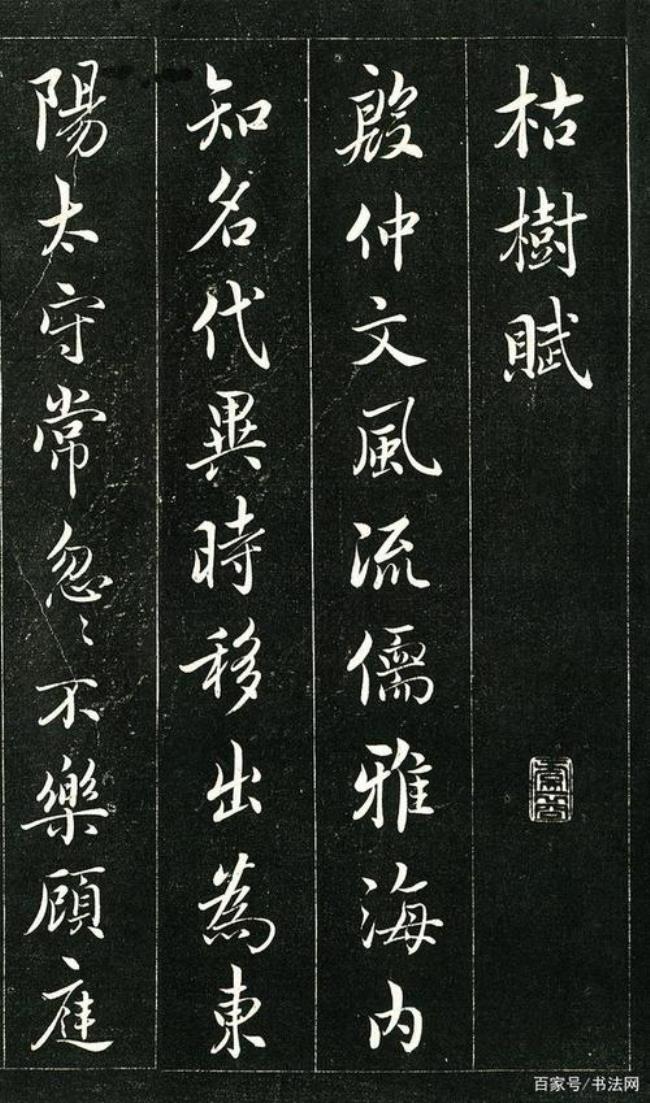 枯樹賦
殷仲文風流儒雅海内
知名代異時移出為東
陽太守常忽〻不樂顧庭
百家号/书法网